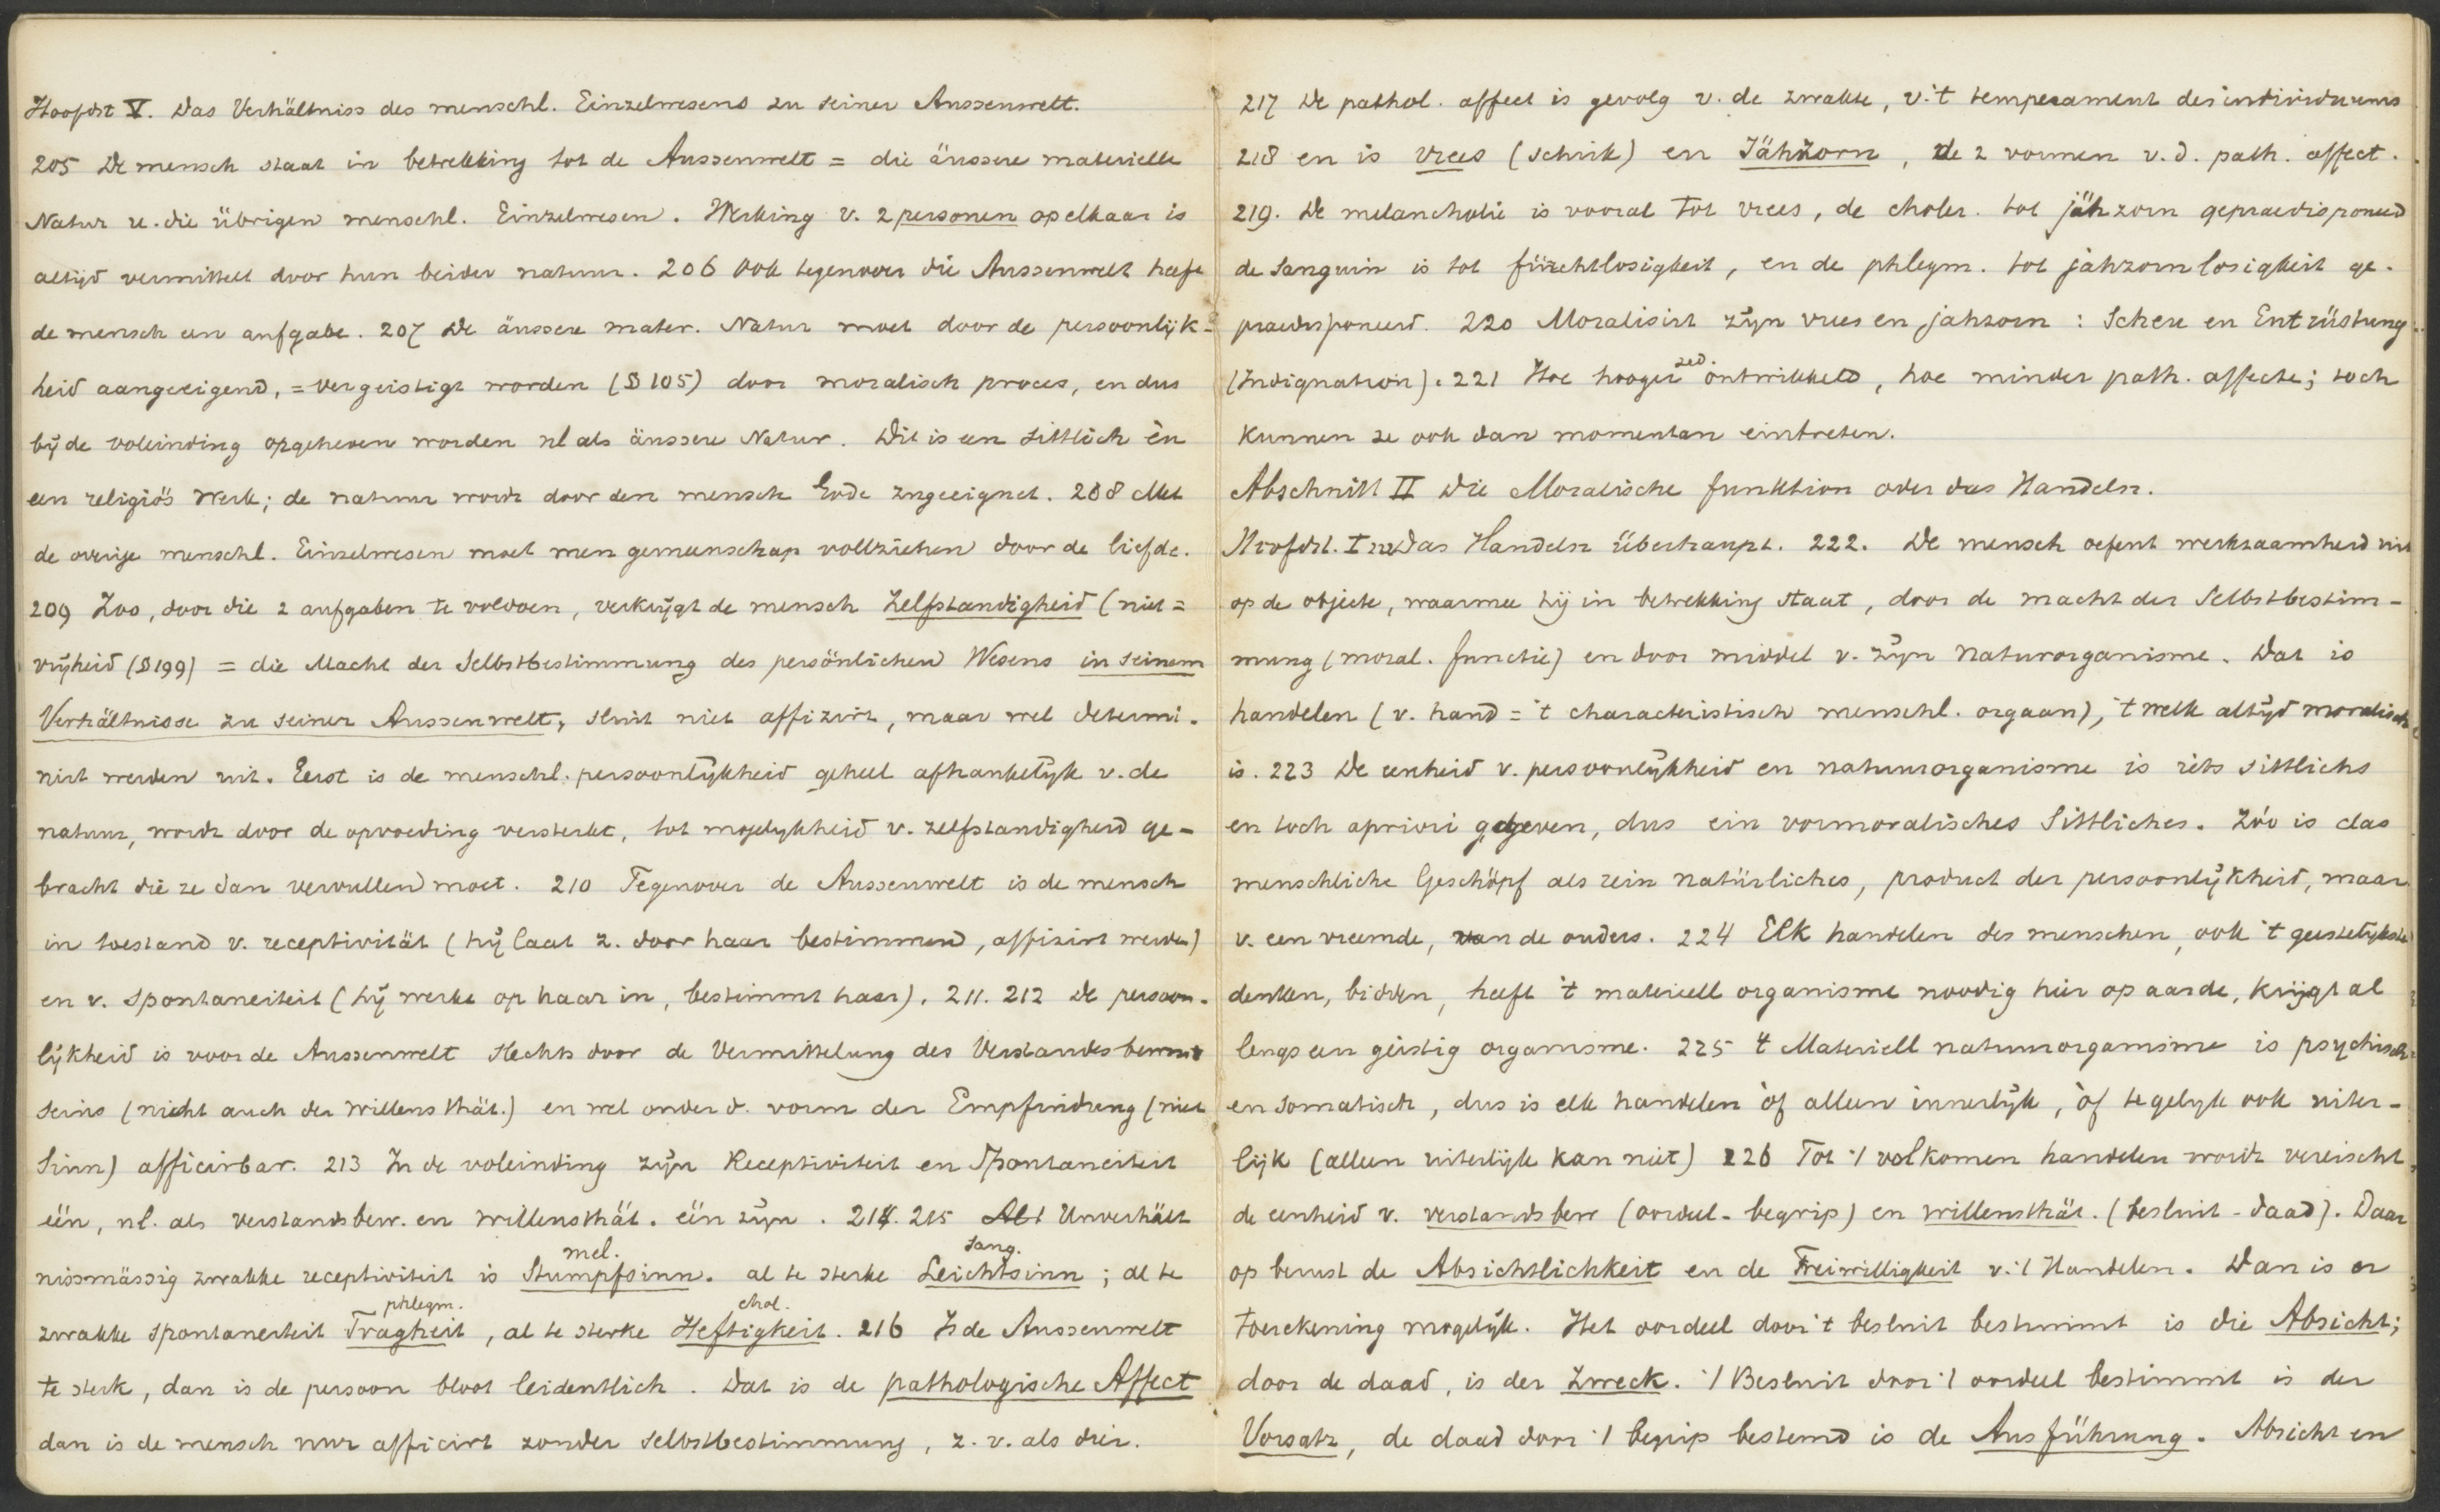 Hoofdst V. Das Verhältniss des menschl. Einzelwesens zu seiner Aussenwelt.
205 De mensch staat in betrekking tot de Aussenwelt = die äussere materielle
Natur u. die übrigen menschl. Einzelwesen. Werking v. 2 personen op elkaar is
altijd vermittelt door hun beider natuur. 206 Ook tegenover die Aussenwelt heeft
de mensch een aufgabe. 207 De äussere mater. Natur moet door de persoonlijk-
heid aangeeigend, = vergeistigt worden (§ 105) door moralisch proces, en dus
bij de voleinding opgeheven worden nl als äussere Natur. Dit is een sittlich èn
een religiös werk; de natuur wordt door den mensch Gode zugeeignet. 208 Met
de overige menschl. Einzelwesen moet men gemeenschap vollziehen door de liefde.
209 Zoo, door die 2 aufgaben te voldoen, verkrijgt de mensch Zelfstandigheid (niet =
vrijheid (§ 199) = die Macht der Selbstbestimmung des persönlichen Wesens in seinem
Verhältnisse zu seiner Aussenwelt, sluit niet affizirt, maar wel determi-
nirt werden uit. Eerst is de menschl. persoonlijkheid geheel afhankelijk v. de
natuur, wordt door de opvoeding versterkt, tot mogelijkheid v. zelfstandigheid ge-
bracht die ze dan vervullen moet. 210 Tegenover de Aussenwelt is de mensch
in toestand v. receptivität (hij laat z. door haar bestimmen, affizirt werden)
en v. spontaneiteit (hij werkt op haar in, bestimmt haar). 211. 212 De persoon-
lijkheid is voor de Aussenwelt slechts door de Vermittelung des Verstandesbewust
seins (nicht auch der willensthät.) en wel onder d. vorm der Empfindung (niet
Sinn) afficirbar. 213 In de voleinding zijn Receptiviteit en Spontaneiteit
één, nl. als verstandsbew. en willensthät. één zijn. 214. 215 Al t Unverhält
nissmässig zwakke receptiviteit is Stumpfsinn. al te sterke Leichtsinn; al te
mel. sang.
zwakke spontaneiteit Tragheit, al te sterke Heftigkeit. 216 Is de Aussenwelt
phlegm. chol.
te sterk, dan is de persoon bloot leidentlich. Dat is de pathologische Affect
dan is de mensch nur afficirt zonder selbstbestimmung, z. v. als dier.
217 De pathol. affect is gevolg v. de zwakte, v. 't temperament des individuums
218 en is vrees (schrik) en Jähzorn, de 2 vormen v. d. path. affect.
219. De melancholie is vooral tot vrees, de choler. tot jähzorn gepraedisponeerd
de sanguin is tot fürchtlosigkeit, en de phlegm. tot jahzornlosigkeit ge-
praedisponeerd. 220 Moralisirt zijn vrees en jahzorn: Scheu en Entrüstung
(Indignation). 221 Hoe hooger zed. ontwikkeld, hoe minder path. affecte; toch
kunnen ze ook dan momentan eintreten.
Abschnitt II Die Moralische funktion oder das Handeln.
Hoofdst. I Das Handeln überhaupt. 222. De mensch oefent werkzaamheid uit
op de objecte, waarmee hij in betrekking staat, door de macht der Selbstbestim-
mung (moral. functie) en door middel v. zijn naturorganisme. Dat is
handelen (v. hand = 't characteristisch menschl. orgaan), 't welk altijd moralisch
is. 223 De eenheid v. persoonlijkheid en natuurorganisme is iets sittlichs
en toch apriori gegeven, dus ein vormoralisches Sittliches. Zóó is das
menschliche Geschöpf als rein natürliches, product der persoonlijkheid, maar
v. een vreemde, van de ouders. 224 Elk handelen des menschen, ook 't geestelijkste
denken, bidden, heeft 't materiell organisme noodig hier op aarde, krijgt al
lengs een geistig organisme. 225 't Materiell natuurorganisme is psychisch
en somatisch, dus is elk handelen òf alleen innerlijk, òf tegelijk ook uiter-
lijk (alleen uiterlijk kan niet) 226 Tot 't volkomen handelen wordt vereischt
de eenheid v. verstandsbew (oordeel - begrip) en willensthät. (besluit - daad). Daar
op berust de Absichtlichkeit en de Freiwilligkeit v. 't Handelen. Dan is er
toerekening mogelijk. Het oordeel door 't besluit bestimmt is die Absicht;
door de daad, is der Zweck. 't Besluit door 't oordeel bestimmt is der
Vorsatz, de daad door 't begrip bestemd is de Ausführung. Absicht en